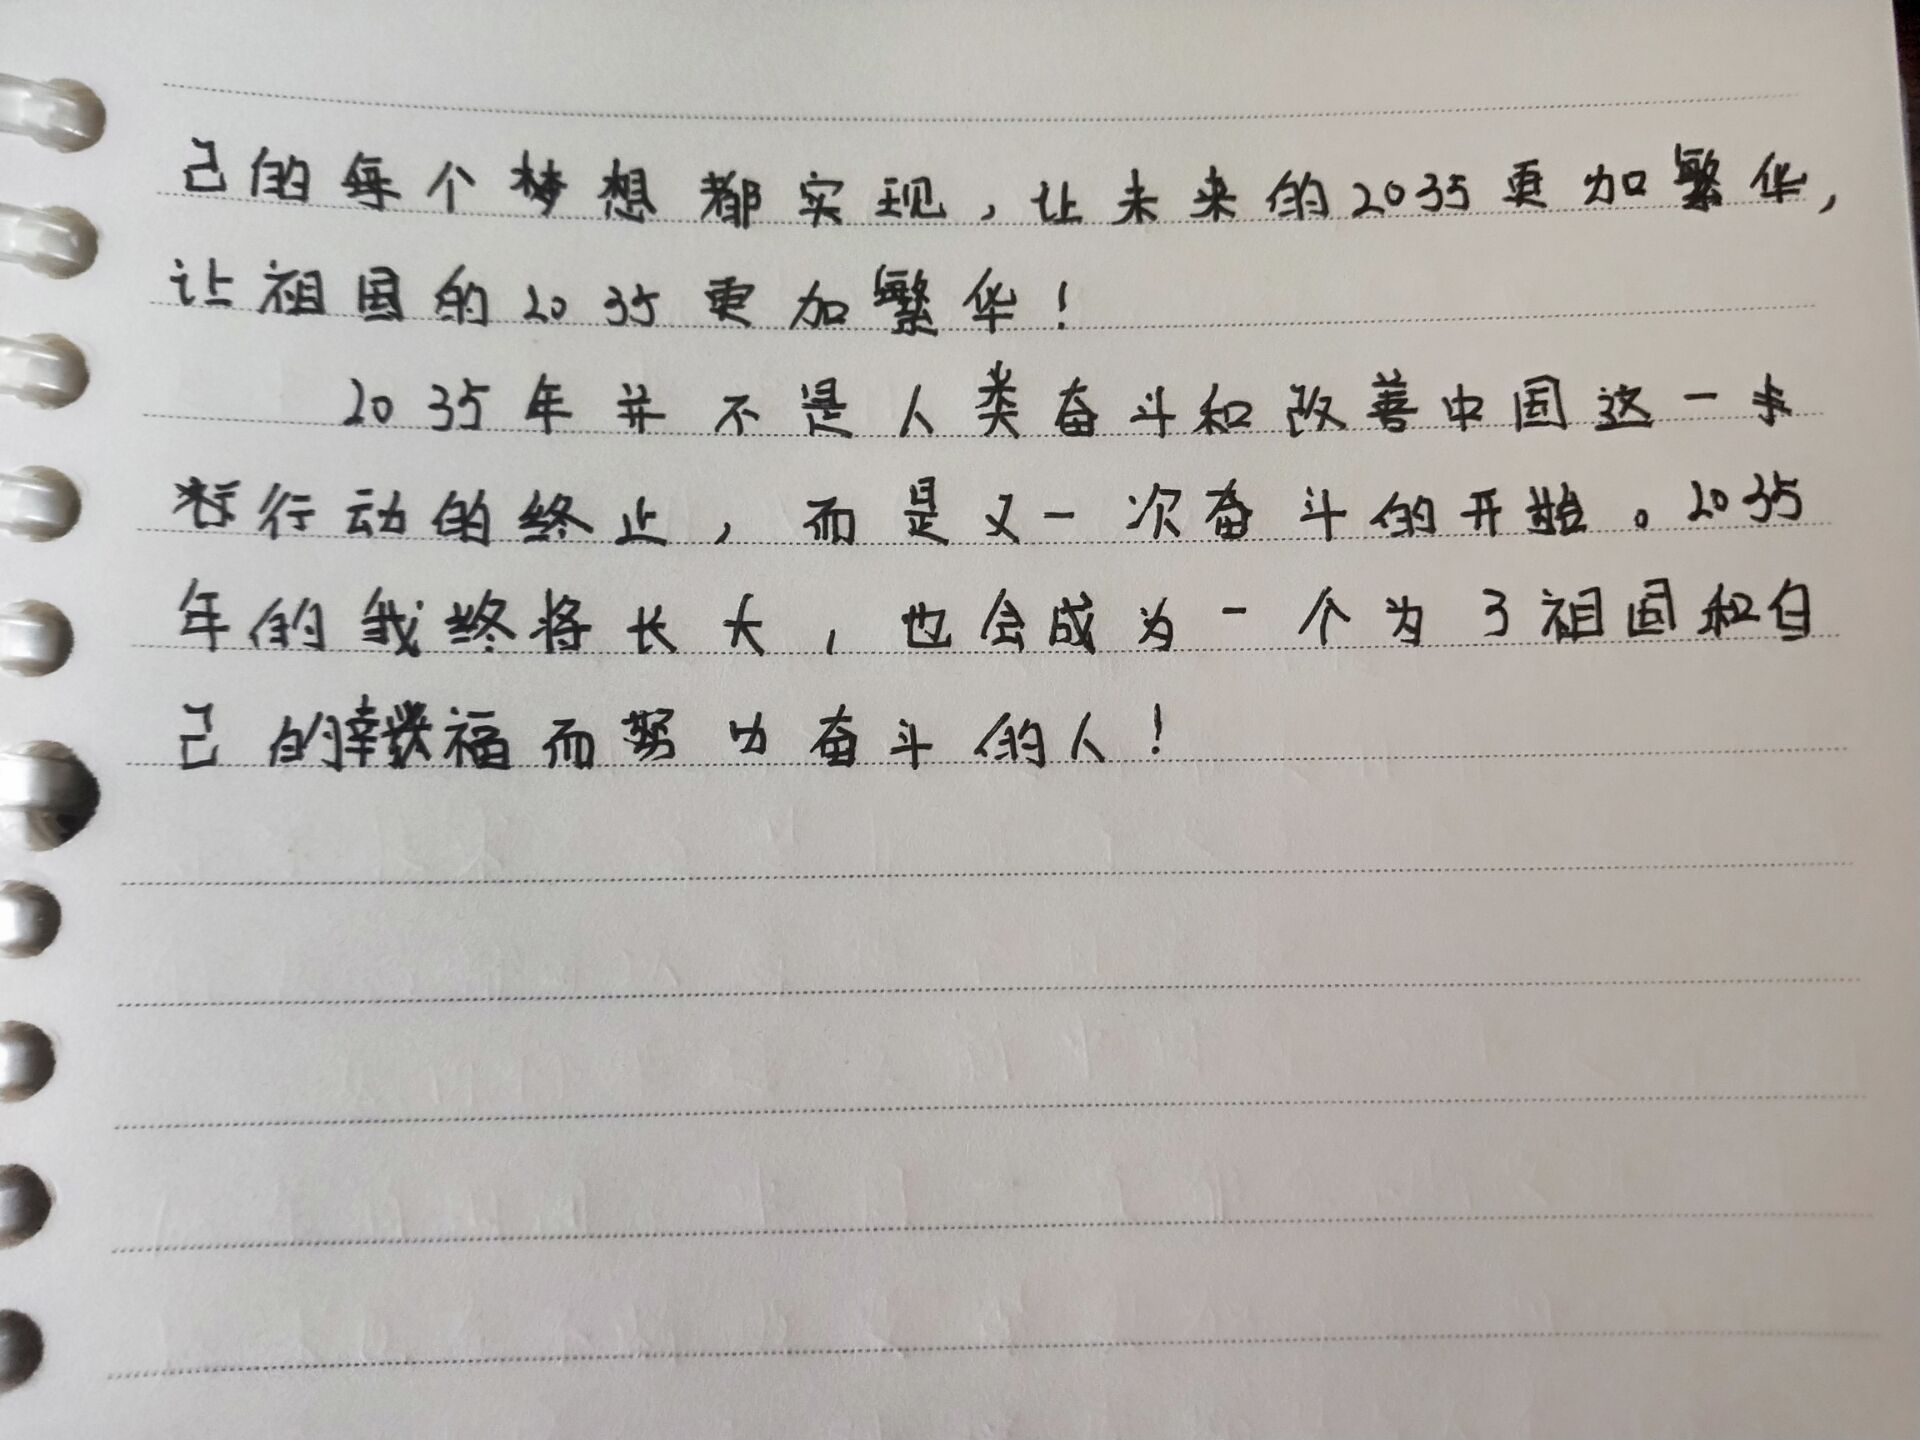 己的每个梦想都实现，让未来的2035更加繁华，
让祖国的2035更加繁华！
2035年并不是人类奋斗和改善中国这一
行动的终止，而是又一次奋斗的开始。2035
年的我终将长大，也会成为一个为了祖国和自
己的幸福而努力奋斗的人！